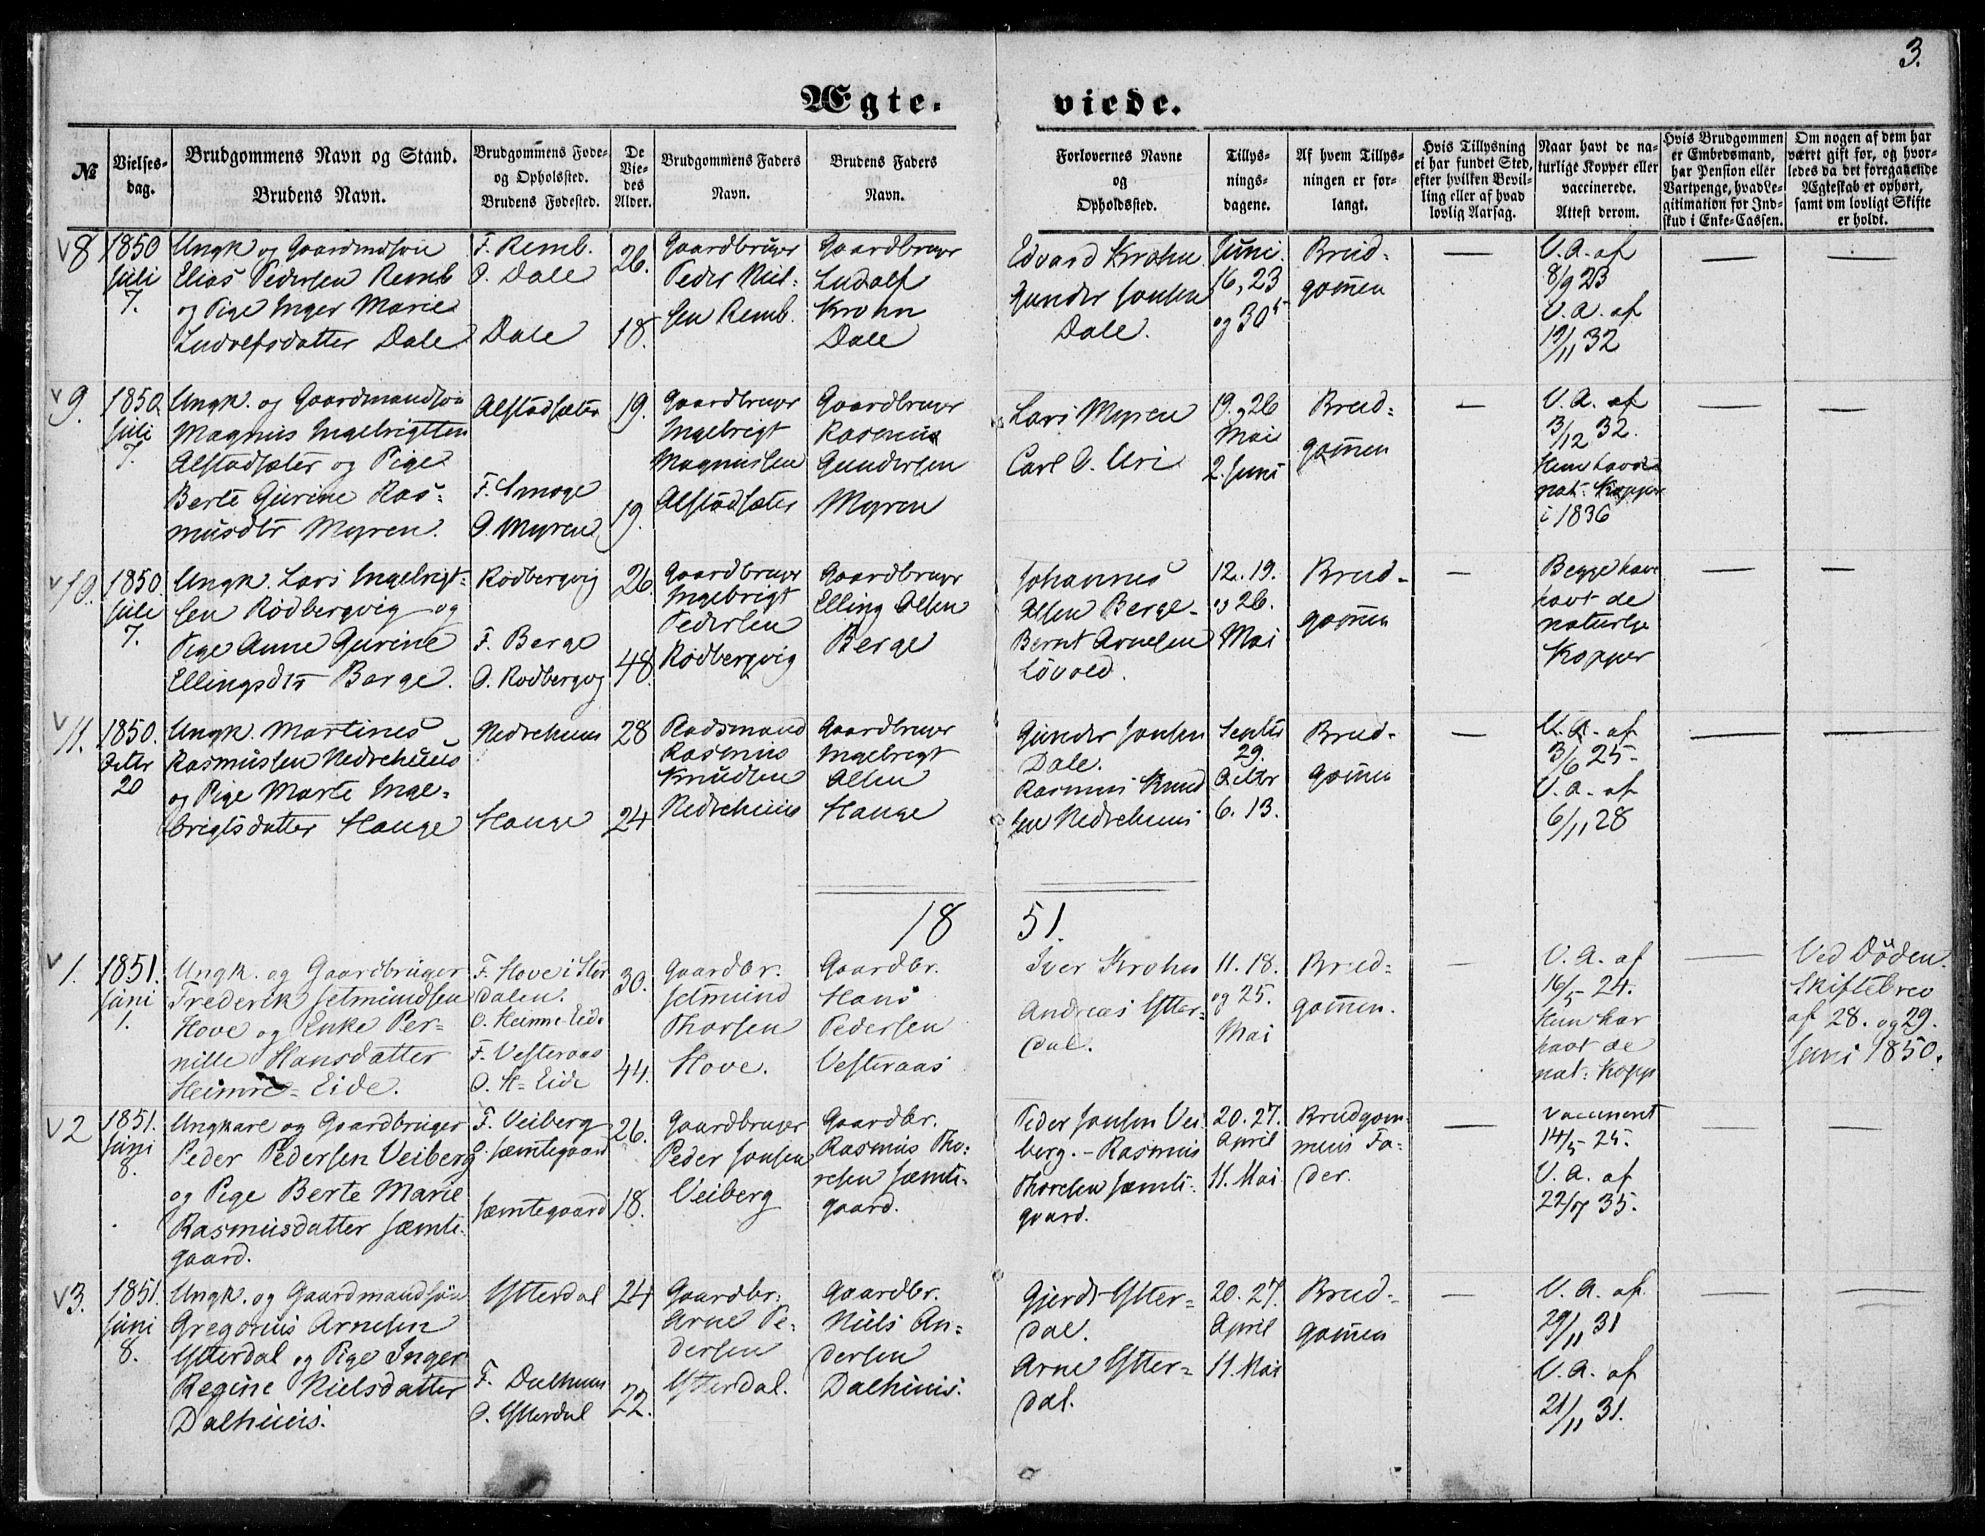 3.
Ægte. viede.
№
Vielses-
dag.
Brudgommens Navn og Stand.
Brudens Navn.
Brudgommens Føde-
og Opholssted.
Brudens Fødested.
De
Vie-
des
Alder.
Brudgommens Faders
Navn.
Brudens Faders
Navn.
Forlovernes Navne
og
Opholdssted.
Tillys-
nings-
dagene.
Af hvem Tillys-
ningen er for-
langt.
Hvis Tillysning
ei har fundet Sted,
efter hvilken Bevil-
ling eller af hvad
lovlig Aarsag.
Naar havt de na-
turlige Kopper eller
vaccinerede.
Attest derom.
Hvis Brudgommen
er Embedsmand,
har Pension eller
Vartpenge, hvad Le-
gitimation for Ind-
skud i Enke-Cassen.
Om nogen af dem har
været gift før, og hvor-
ledes da det foregaaende
Ægteskab et ophørt,
samt om lovligt Skifte
er holdt.
8
1850
Juli
7.
Ungk og Gaardmdsøn
Elias Pedersen Remb
og Pige Inger Marie
Ludolfsdatter Dale
F. Remb.
O. Dale
Dale
26.
18.
Gaardbruger
Peder Niel-
sen Remb.
Gaardbruger
Ludolf
Krohn
Dale
Edvard Krohn
Gunder Jonsen
Dale.
Juni.
16, 23
og 30
Brud-
gommen
—
V. A. af
8/9 23
V. A. af
12/11 32
—
—
9.
1850.
Juli
7.
Ungk. og Gaardmandsøn
Magnus Ingebrigtsen
Alstadsæter og Pige
Berte Gurine Ras-
musdtr Myren.
Alstadsæter
F. Smoge
O. Myren
19.
19.
Gaardbruger
Ingebrigt
Magnussen
Alstadsæter
Gaardbruger
Rasmus
Gundersen
Myren
Lars Myren
Carl O. Uri
19. og 26
Mai
2. Juni
Brud-
gommen
—
V. A. af
3/12 32.
Hun havde
nat: Kopper
i 1836
—
—
10.
1850
Juli
7.
Ungk. Lars Ingebrigt-
sen Rødbergvig og
Pige Anne Gurine
Ellingsdtr Berge.
Rødbergvig
F. Berge
O. Rødbergvig
26
48.
Gaardbruger
Ingebrigt
Pedersen
Rødbergvig
Gaardbruger
Elling Olsen
Berge
Johannes
Olsen Berge-
Bernt Arnesen
Løvold.
12. 19.
og 26.
Mai
Brud-
gommen
—
Begge have
havt de
naturlge
Kopper
—
—
11.
1850.
Octbr
20
Ungk. Martines
Rasmussen Nedrehuus
og Pige Marte Inge-
brigtsdatter Hauge
Nedrehuus
Hauge
28
24
Radsmand
Rasmus
Knudsen
Nedrehuus
Gaardbruger
Ingebrigt
Olsen
Hauge
Gunder Jonsen
Dale.
Rasmus Knud
sen Nedrehuus
Septbr
29.
Octbr
6. 13.
Brud-
gommen
—
V. A. af
3/6 25-
V. A. af
6/11 28
—
—
18 51.
1.
1851.
Juni
1.
Ungk. og Gaardbruger
Frederik Jetmundsen
Hove og Enke Per-
nille Hansdatter
Heimre-Eide.
F. Hove i Stor
dalen.
O. Heimre-Eide
F. Vesteraas
O. H-Eide
30.
44.
Gaardbr.
Jetmund
Thorsen
Hove.
Gaardbr.
Hans
Pedersen
Vesteraas
Iver Krohn
Andreas Ytter-
dal.
11. 18.
og 25.
Mai
Brud-
gommen.
V. A. af
16/5 24.
Hun har
havt de
nat: Kopp
—
Ved Døden.
Skiftebrev
af 28. og 29.
Juni 1850.
2
1851.
Juni
8.
Ungkare og Gaardbruger
Peder Pedersen Veiberg
og Pige Berte Marie
Rasmusdatter Jæmte-
gaard.
F. Veiberg
O. Jæmtegaard
Jæmtegaard
26.
18.
Gaardbruger
Peder Jonsen
Veiberg
Gaardbr.
Rasmus Tho-
resen Jæmte-
gaard.
Peder Jonsen Vei
berg. - Rasmus
Thoresen Jæmte-
gaard.
20. 27.
April
11. Mai
Brudgom-
mens Fa-
der.
—
vaccineret
14/5 25.
V. A. af
22/7 35.
—
—
3.
1851.
Juni
8.
Ungk. og Gaardmandsøn
Gregorius Arnesen
Ytterdal og Pige Inger
Regine Nielsdatter
Dalhuus.
Ytterdal
F. Dalhuus
O. Ytterdal
24
22.
Gaardbr.
Arne Pe-
dersen
Ytterdal.
Gaardbr.
Niels An-
dersen
Dalhuus.
Gjerdt Ytter-
dal.
Arne Ytter-
dal.
20. 27.
April
11. Mai
Brud-
gommen
—
V. A. af
29/11 31
V. A. af
21/11 31.
—
—